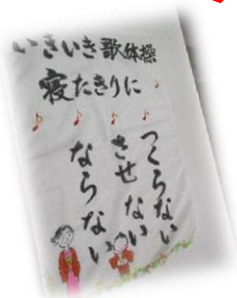 いきいき歌体操
寝たきりに
つくらない
させない
ならない